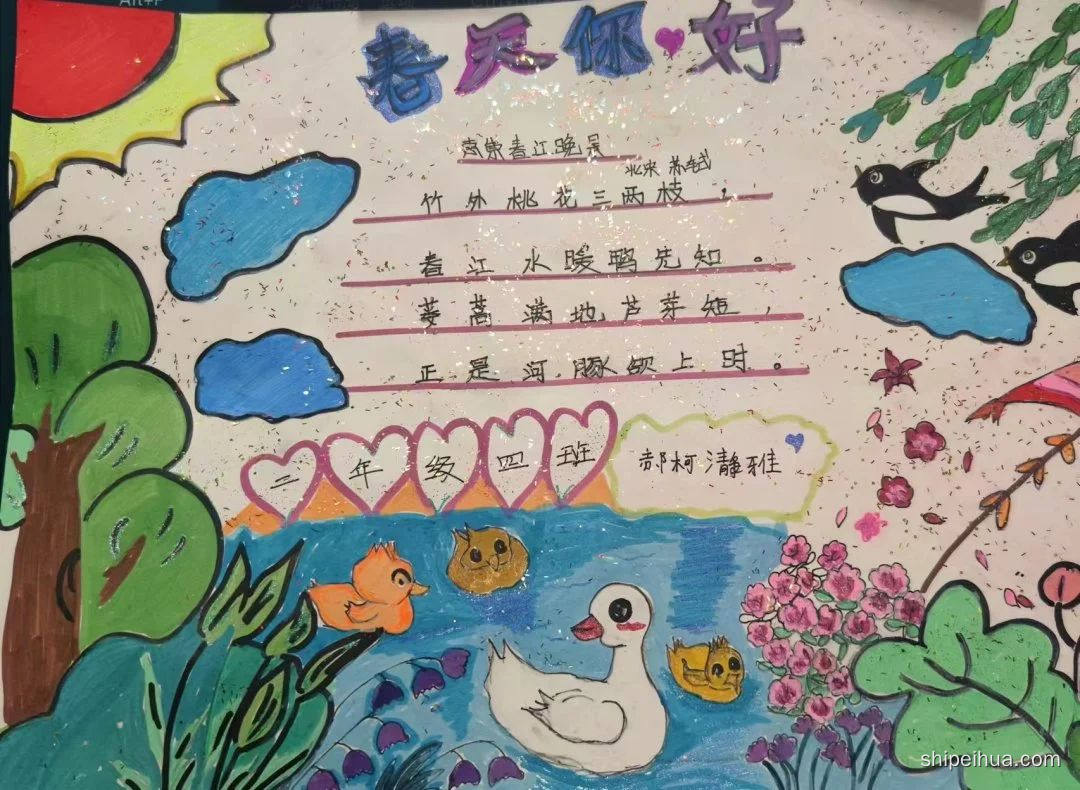 春天你好
惠崇春江晚景
北宋 苏轼
竹外桃花三两枝，
春江水暖鸭先知。
蒌蒿满地芦芽短，
正是河豚欲上时。
二年级四班
郝柯瀞雅
shipeihua.com